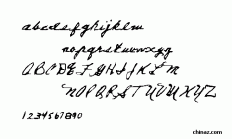 abcdefghijklm
nopqrstuvwxyz
ABCDEFGHIJKLM
NOPQRSTUVWXYZ
1234567890
chinaz.com